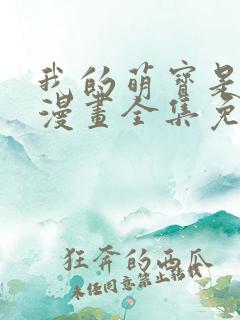 我的萌寶是
漫畫全集免
狂奔的西瓜
未经同意禁止转载